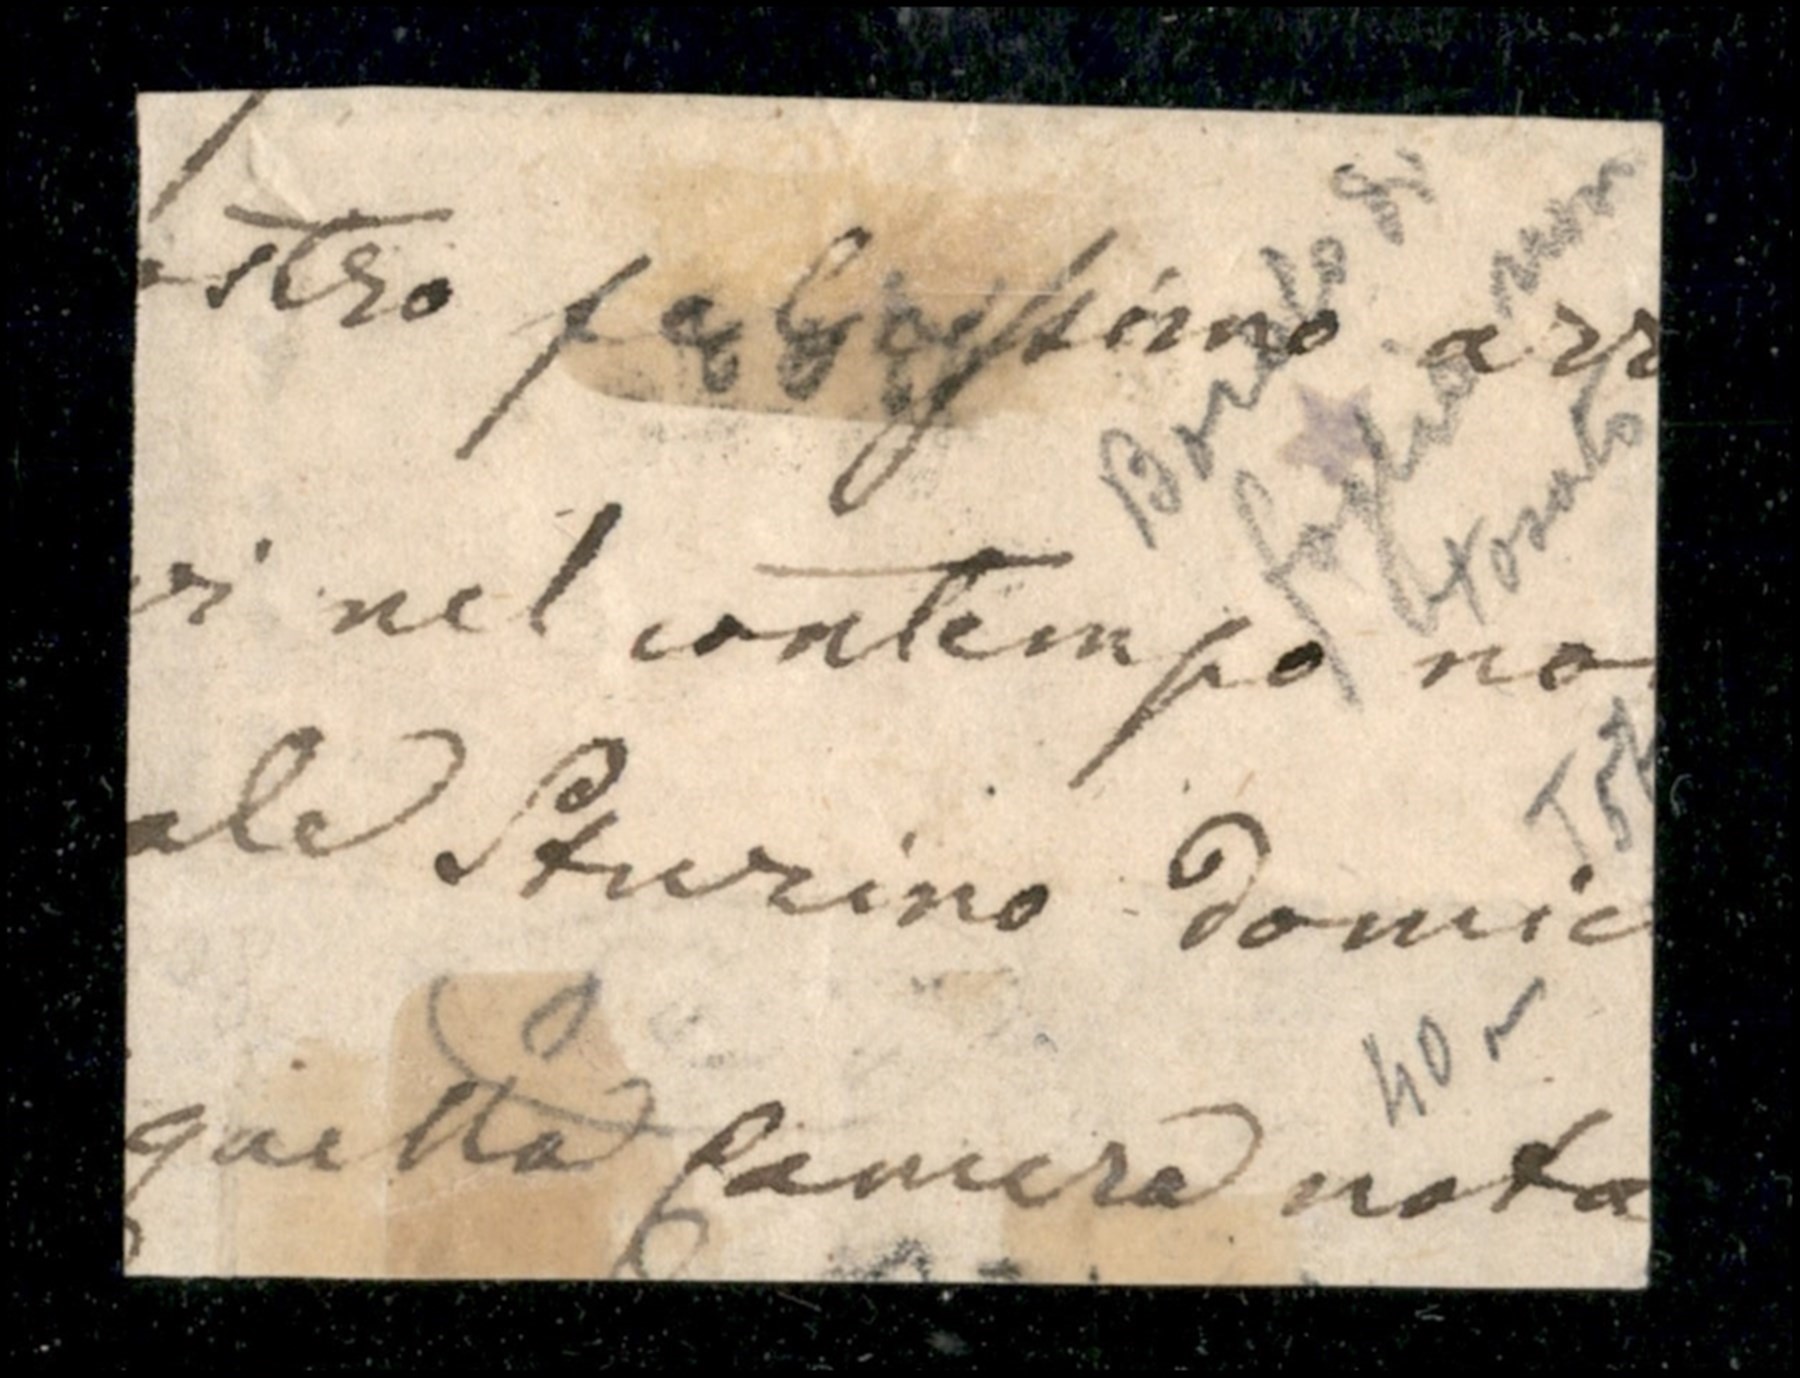 ostro arr
ri nel contempo no
ale Sturino domic
quella Camera nota
Bordo di
foglio non
tosato
40